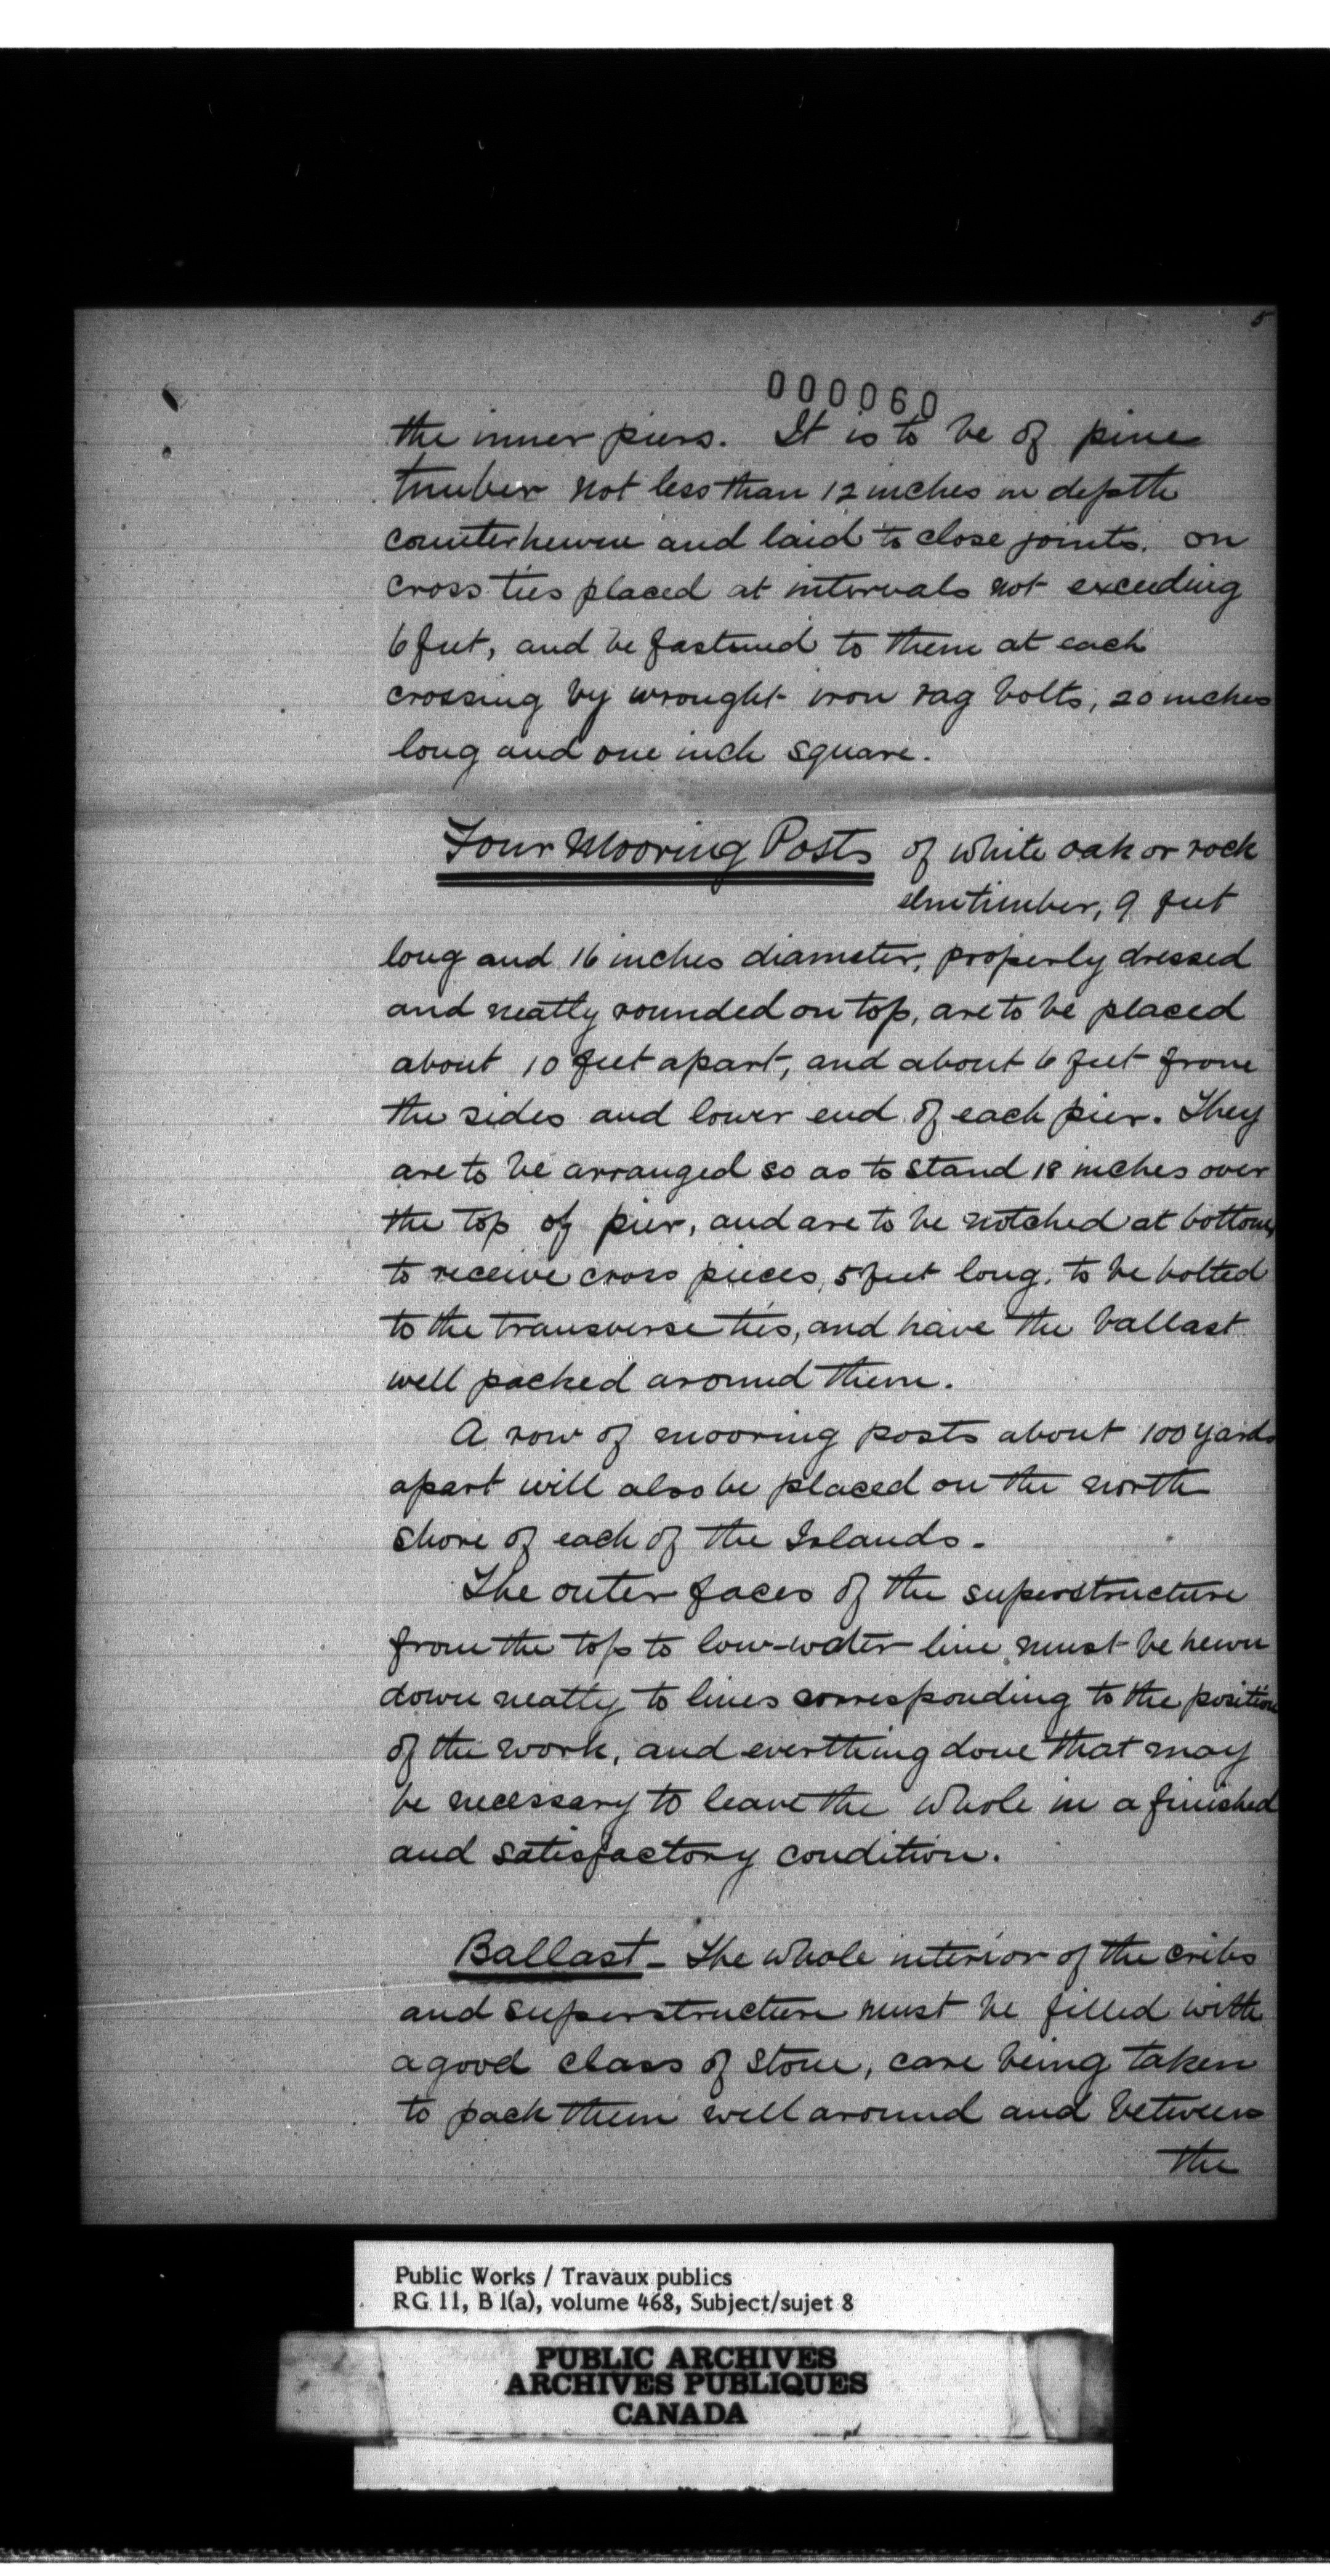 5
000060
the inner piers. It is to be of pine
timber not less than 12 inches in depth
counterhewn and laid to close joints. on
cross ties placed at intervals not exceeding
6 feet, and be fastened to them at each
crossing by wrought iron rag bolts, 20 inches
long and one inch square.
Four Mooring Posts of white oak or rock
elm timber, 9 feet
long and 16 inches diameter, properly dressed
and neatly rounded on top, are to be placed
about 10 feet apart, and about 6 feet from
the sides and lower end of each pier. They
are to be arranged so as to stand 18 inches over
the top of pier, and are to be notched at bottom
to receive cross pieces, 5 feet long, to be bolted
to the transverse ties, and have the ballast
well packed around them.
A row of mooring posts about 100 yards
apart will also be placed on the north
shore of each of the Islands.
The outer faces of the superstructure
from the top to low-water line must be hewn
down neatly to lines corresponding to the position
of the work, and everthing done that may
be necessary to leave the whole in a finished
and satisfactory condition.
Ballast - The whole interior of the cribs
and superstructure must be filled with
a good class of stone, care being taken
to pack them well around and between
the
Public Works / Travaux publics
RG 11, B 1(a), volume 468, Subject/sujet 8
PUBLIC ARCHIVES
ARCHIVES PUBLIQUES
CANADA